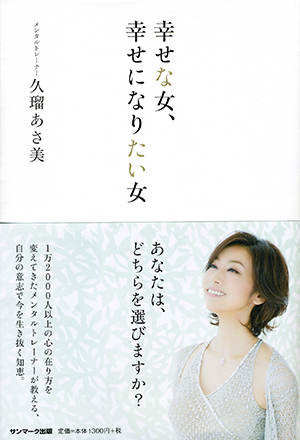 幸せな女、
幸せになりたい女
メンタルトレーナー
久瑠あさ美
あなたは、
どちらを選びますか?
1万2000人以上の心の在り方を
変えてきたメンタルトレーナーが教える、
自分の意志で今を生き抜く知恵。
サンマーク出版 定価=本体1300円+税